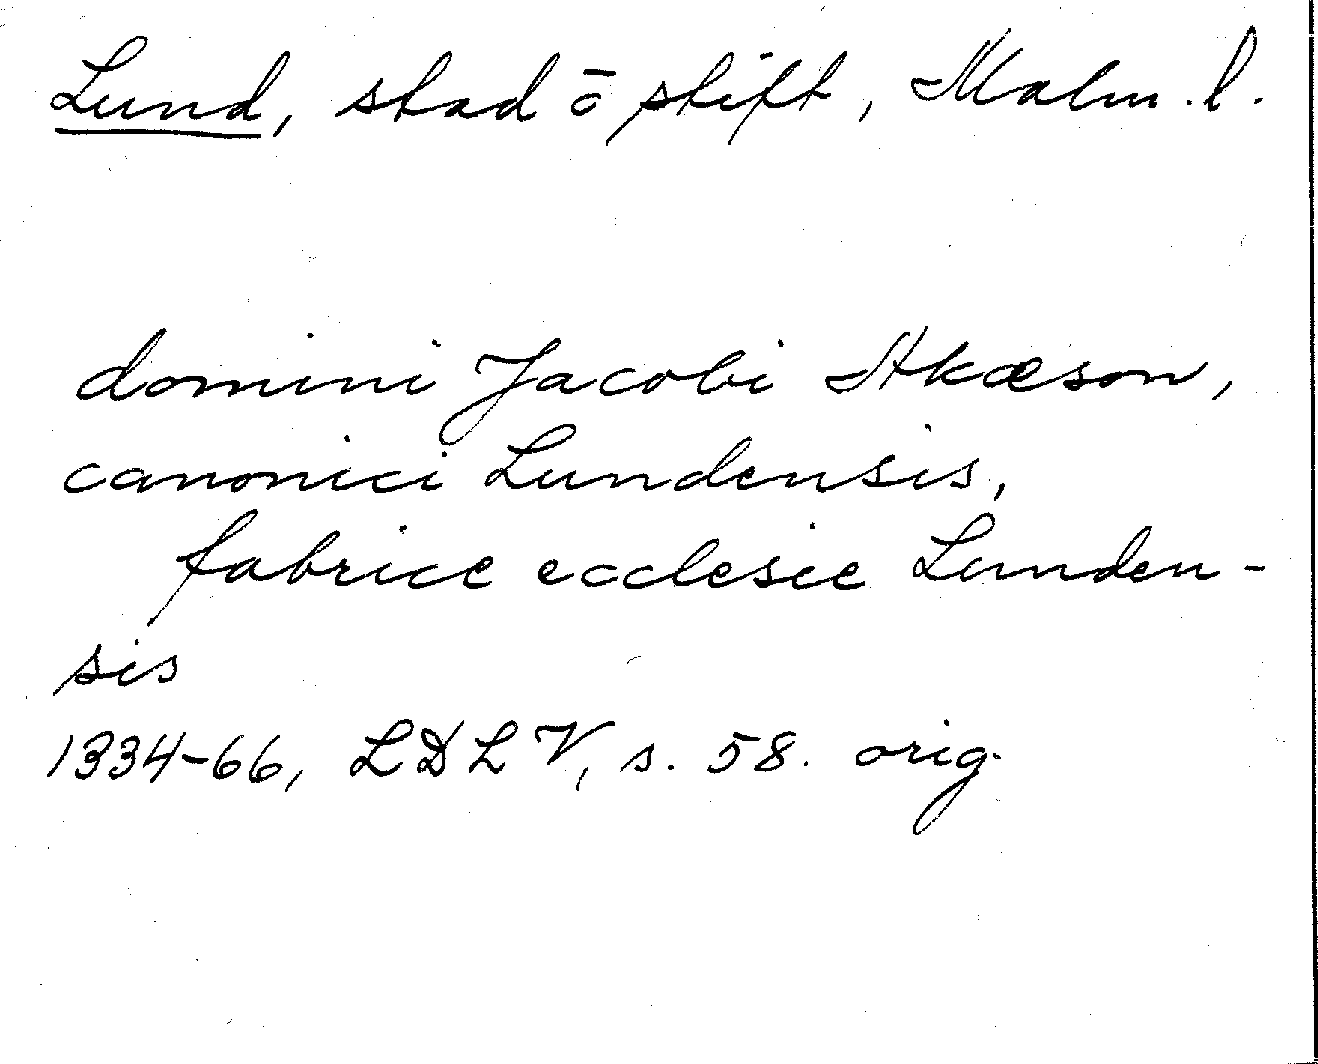 Lund, stad ō stift, Malm. l.
domini Jacobi Akæson,
canonici Lundensis,
fabrice ecclesie Lunden-
sis
1334-66, LDL V, s. 58. orig.